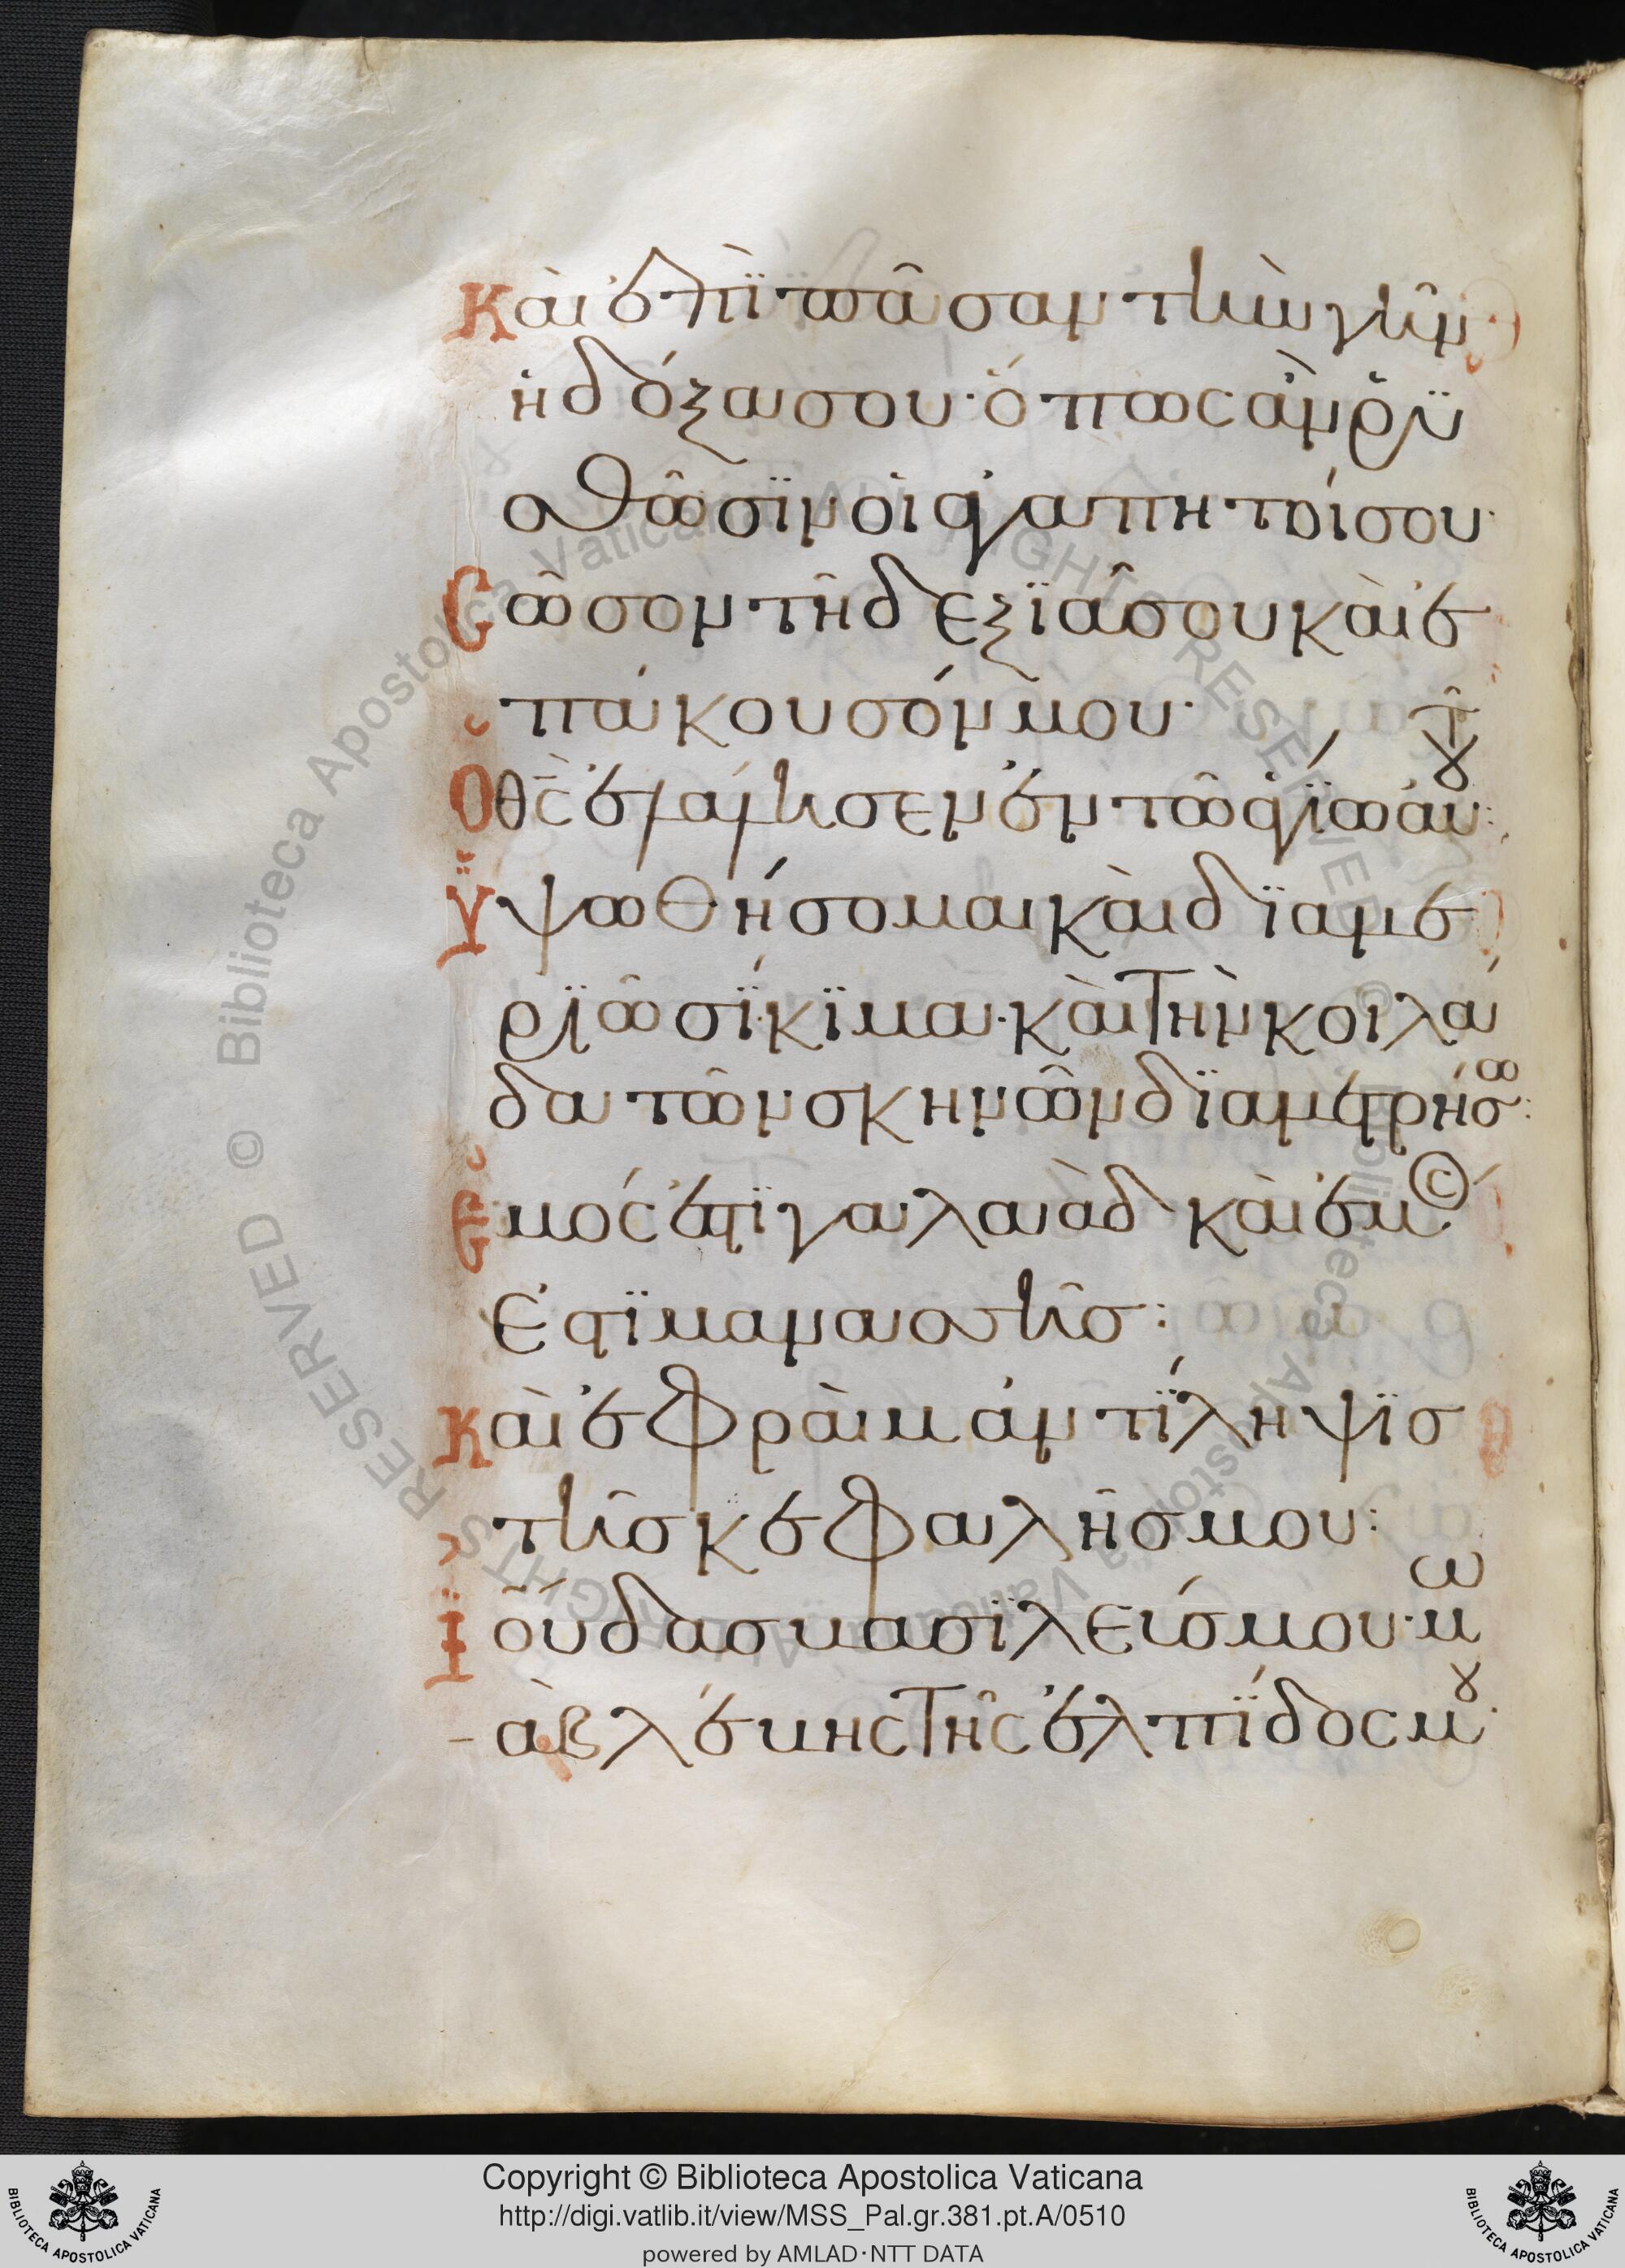 Και ἐπϊ πᾶσαν τὴν γῆν
ἡ δόξα σου· ὅπως ἀν ῥυ
σθῶσϊν οἱ ἀγαπητοί σου·
Cῶσον τῆ δεξϊᾶ σου και ἐ
πάκουσόν μου·
Ὁ θ̅ς̅ ἐλάλησεν ἐν τῶ ἁγίω ἀυτοῦ:
Ὑψωθήσομαι και δϊαμε
ρϊῶ σίκϊμα· και τὴν κοιλά
δα τῶν σκηνῶν δϊαμετρήσω:
Ἐμός ἐστϊ γαλαὰδ· και ἐμός
Ἐστϊ μανασσῆσ:
Και ἐφραιμ ἀντίληψϊσ
τῆσ κεφαλῆσ μου:
Ἰούδασ βασϊλεύσ μου· μω
ὰβ λέβης τῆς ἐλπίδος μου·
Copyright © Biblioteca Apostolica Vaticana
http://digi.vatlib.it/view/MSS_Pal.gr.381.pt.A/0510
powered by AMLAD·NTT DATA
BIBLIOTECA APOSTOLICA VATICANA
BIBLIOTECA APOSTOLICA VATICANA